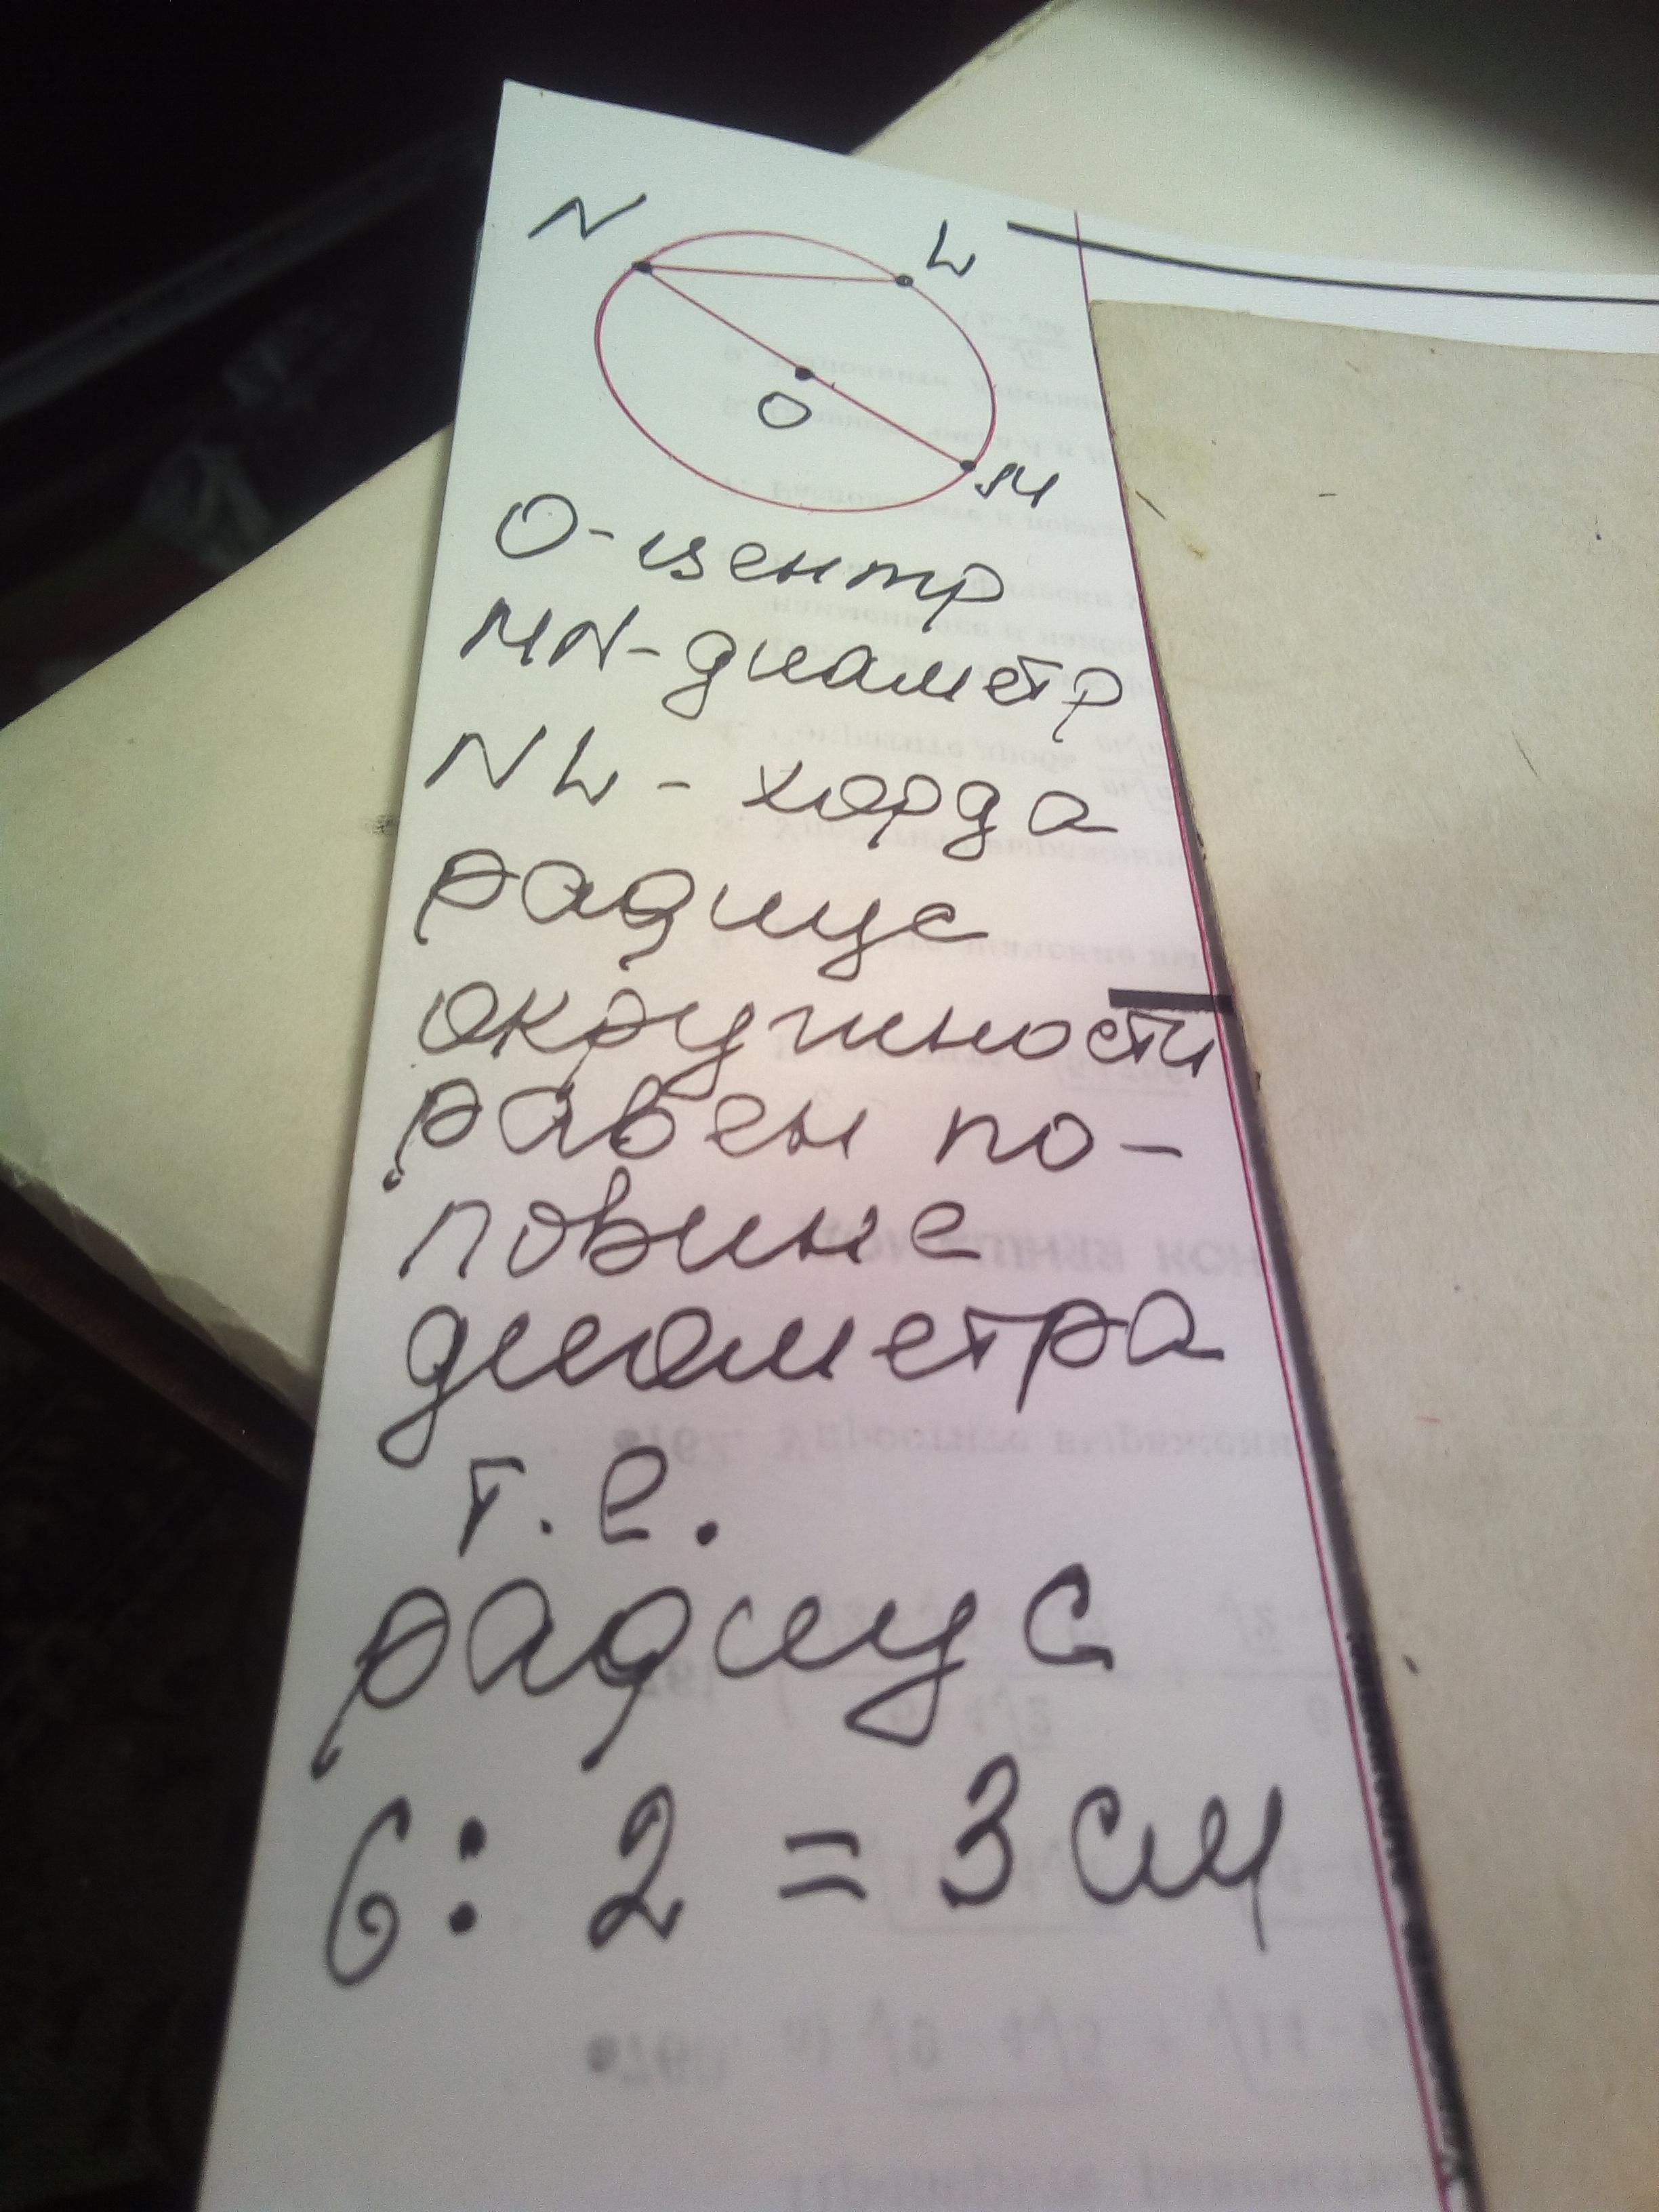 N
L
O
M
O-центр
MN-диаметр
NL - хорда
радиус
окружности
равен по-
ловине
диаметра
т.е.
радиус
6: 2 = 3 см